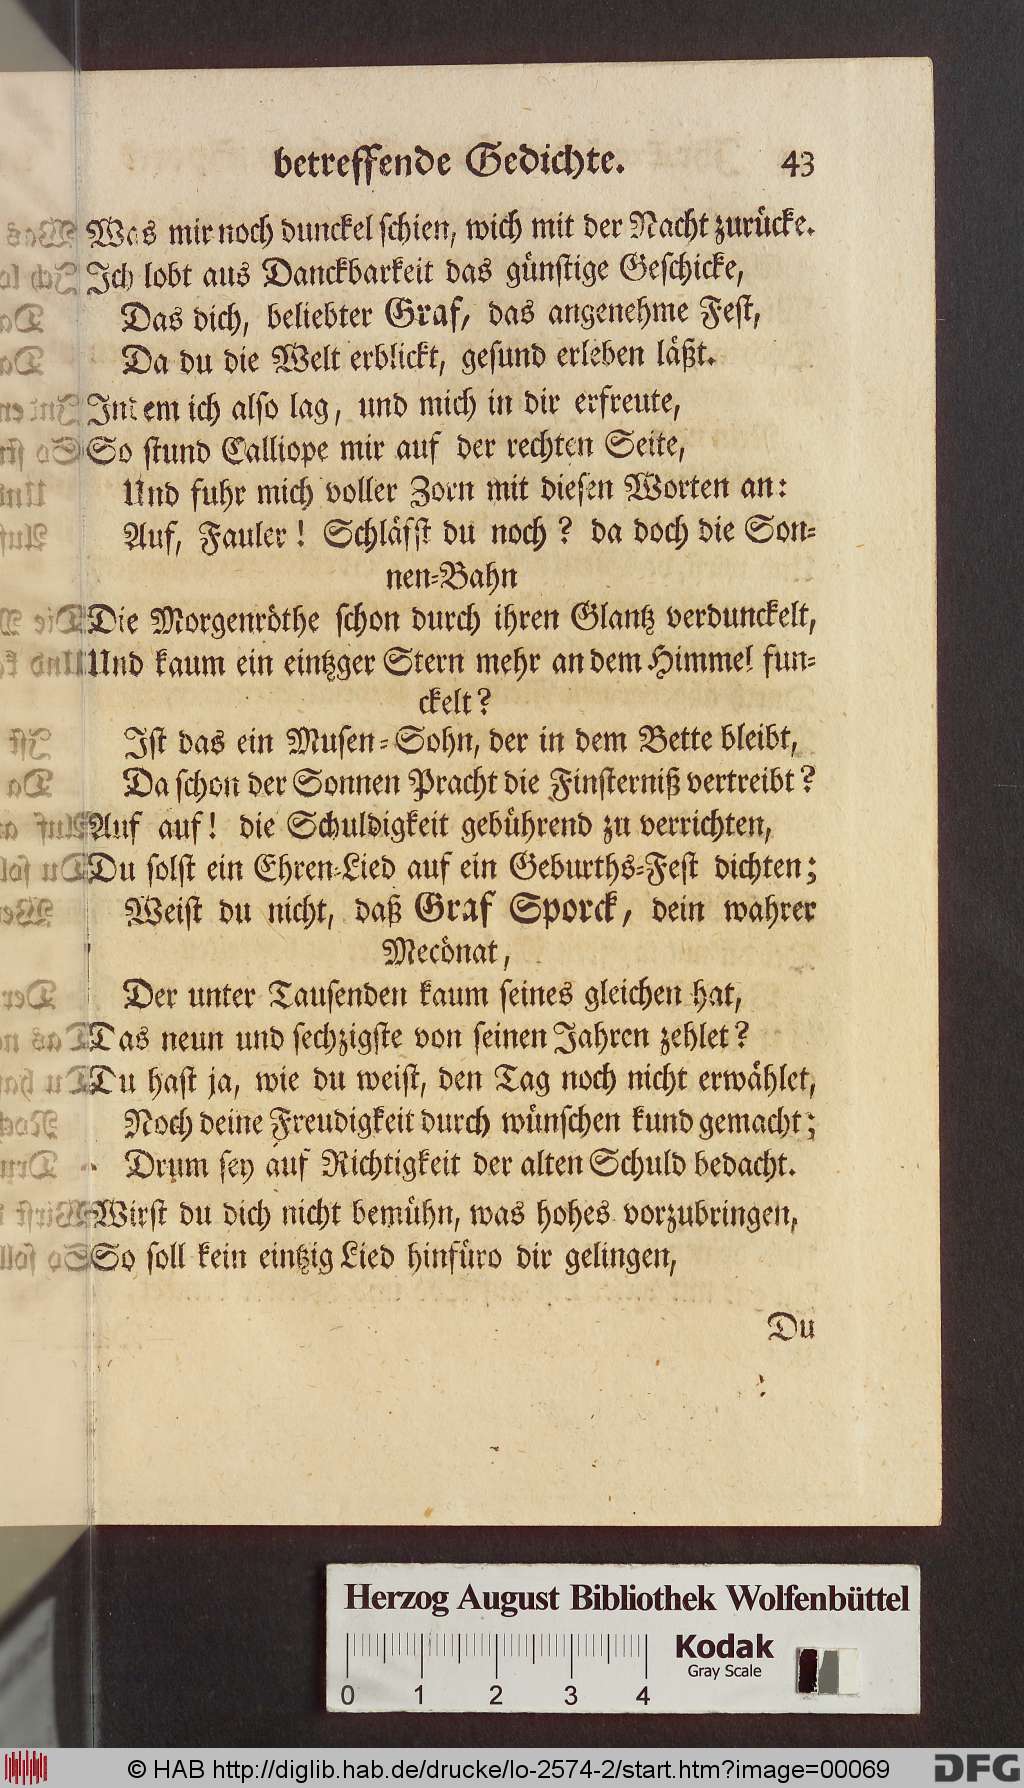 betreffende Gedichte. 43
Was mir noch dunckel schien, wich mit der Nacht zurücke.
Ich lobt aus Danckbarkeit das günstige Geschicke,
Das dich, beliebter Graf, das angenehme Fest,
Da du die Welt erblickt, gesund erleben läßt.
Indem ich also lag, und mich in dir erfreute,
So stund Calliope mir auf der rechten Seite,
Und fuhr mich voller Zorn mit diesen Worten an:
Auf, Fauler! Schläfst du noch? da doch die Son-
nen-Bahn
Die Morgenröthe schon durch ihren Glantz verdunckelt,
Und kaum ein eintzger Stern mehr an dem Himmel fun-
ckelt?
Ist das ein Musen-Sohn, der in dem Bette bleibt,
Da schon der Sonnen Pracht die Finsterniß vertreibt?
Auf auf! die Schuldigkeit gebührend zu verrichten,
Du solst ein Ehren-Lied auf ein Geburths-Fest dichten;
Weist du nicht, daß Graf Sporck, dein wahrer
Mecönat,
Der unter Tausenden kaum seines gleichen hat,
Das neun und sechzigste von seinen Jahren zehlet?
Du hast ja, wie du weist, den Tag noch nicht erwählet,
Noch deine Freudigkeit durch wünschen kund gemacht;
Drum sey auf Richtigkeit der alten Schuld bedacht.
Wirst du dich nicht bemühn, was hohes vorzubringen,
So soll kein eintzig Lied hinfüro dir gelingen,
Du
Herzog August Bibliothek Wolfenbüttel
Kodak
Gray Scale
0 1 2 3 4
© HAB http://diglib.hab.de/drucke/lo-2574-2/start.htm?image=00069
DFG